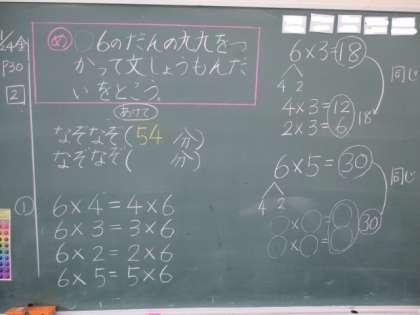 11/24金
P30
2
め 6のだんの九九をつ
かって文しょうもんだ
いをとこう。
あけて
なぞなぞ(54 分)
なぞなぞ( 分)
① 6×4=4×6
6×3=3×6
6×2=2×6
6×5=5×6
6×3=18
4 2
同じ
4×3=12
2×3=6
18
6×5=30
4 2
同じ
○×○=○
○×○=○
30